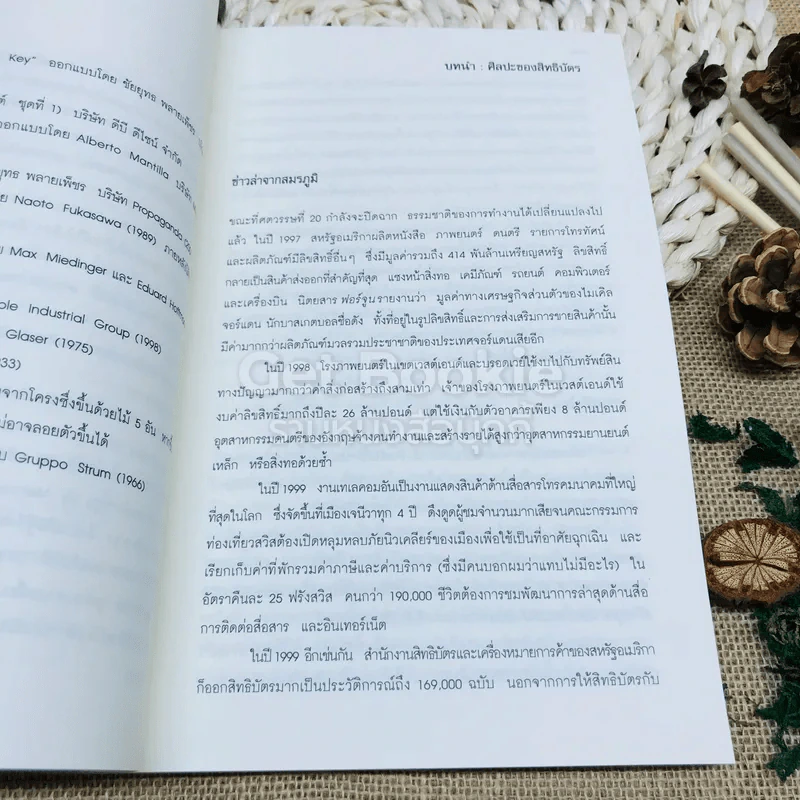 Key" ออกแบบโดย ชัยยุทธ พลายเพ็ชร
ชุดที่ 1) บริษัท ดีบี ดีไซน์ จำกัด
ออกแบบโดย Alberto Mantilla บริษัท
ยุทธ พลายเพ็ชร บริษัท Propaganda
Naoto Fukasawa (1989) ภายหลัง
Max Miedinger และ Eduard
ble Industrial Group (1998)
Glaser (1975)
33)
จากโครงซึ่งขึ้นด้วยไม้ 5 อัน
ม่อาจลอยตัวขึ้นได้
บ Gruppo Strum (1966)
บทนำ : ศิลปะของสิทธิบัตร
ข่าวล่าจากสมรภูมิ
ขณะที่ศตวรรษที่ 20 กำลังจะปิดฉาก ธรรมชาติของการทำงานได้เปลี่ยนแปลงไป
แล้ว ในปี 1997 สหรัฐอเมริกาผลิตหนังสือ ภาพยนตร์ ดนตรี รายการโทรทัศน์
และผลิตภัณฑ์มีลิขสิทธิ์อื่นๆ ซึ่งมีมูลค่ารวมถึง 414 พันล้านเหรียญสหรัฐ ลิขสิทธิ์
กลายเป็นสินค้าส่งออกที่สำคัญที่สุด แซงหน้าสิ่งทอ เคมีภัณฑ์ รถยนต์ คอมพิวเตอร์
และเครื่องบิน นิตยสารฟอร์จูนรายงานว่า มูลค่าทางเศรษฐกิจส่วนตัวของไมเคิล
จอร์แดน นักบาสเกตบอลชื่อดัง ทั้งที่อยู่ในรูปลิขสิทธิ์และการส่งเสริมการขายสินค้านั้น
มีค่ามากกว่าผลิตภัณฑ์มวลรวมประชาชาติของประเทศจอร์แดนเสียอีก
ในปี 1998 โรงภาพยนตร์ในเขตเวสต์เอนด์และบรอดเวย์ใช้งบไปกับทรัพย์สิน
ทางปัญญามากกว่าค่าสิ่งก่อสร้างถึงสามเท่า เจ้าของโรงภาพยนตร์ในเวสต์เอนด์ใช้
งบค่าลิขสิทธิ์มากถึงปีละ 26 ล้านปอนด์ แต่ใช้เงินกับตัวอาคารเพียง 8 ล้านปอนด์
อุตสาหกรรมดนตรีของอังกฤษจ้างคนทำงานและสร้างรายได้สูงกว่าอุตสาหกรรมยานยนต์
เหล็ก หรือสิ่งทอด้วยซ้ำ
ในปี 1999 งานเทเลคอมอันเป็นงานแสดงสินค้าด้านสื่อสารโทรคมนาคมที่ใหญ่
ที่สุดในโลก ซึ่งจัดขึ้นที่เมืองเจนีวาทุก 4 ปี ดึงดูดผู้ชมจำนวนมากเสียจนคณะกรรมการ
ท่องเที่ยวสวิสต้องเปิดหลุมหลบภัยนิวเคลียร์ของเมืองเพื่อใช้เป็นที่อาศัยฉุกเฉิน และ
เรียกเก็บค่าที่พักรวมค่าภาษีและค่าบริการ (ซึ่งมีคนบอกผมว่าแทบไม่มีอะไร) ใน
อัตราคืนละ 25 ฟรังสวิส คนกว่า 190,000 ชีวิตต้องการชมพัฒนาการล่าสุดด้านสื่อ
การติดต่อสื่อสาร และอินเทอร์เน็ต
ในปี 1999 อีกเช่นกัน สำนักงานสิทธิบัตรและเครื่องหมายการค้าของสหรัฐอเมริกา
ก็ออกสิทธิบัตรมากเป็นประวัติการณ์ถึง 169,000 ฉบับ นอกจากการให้สิทธิบัตรกับ
Get Bookie
ร้านหนังสือมุกก